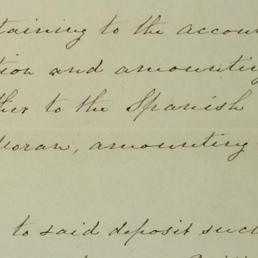 taining to the accou
tion and amounting
ther to the Spanish
oran, amounting
to said deposit suc